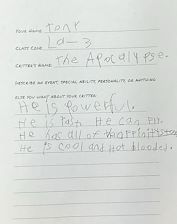 YOUR NAME: Tony
CLASS CODE: La-3
CRITTER'S NAME: The Apocalypse.
DESCRIBE AN EVENT, SPECIAL ABILITY, PERSONALITY, OR ANYTHING
ELSE YOU WANT ABOUT YOUR CRITTER:
He is powerful.
He is fast. He can fly.
He has all of the
He is cool and hot blooded.